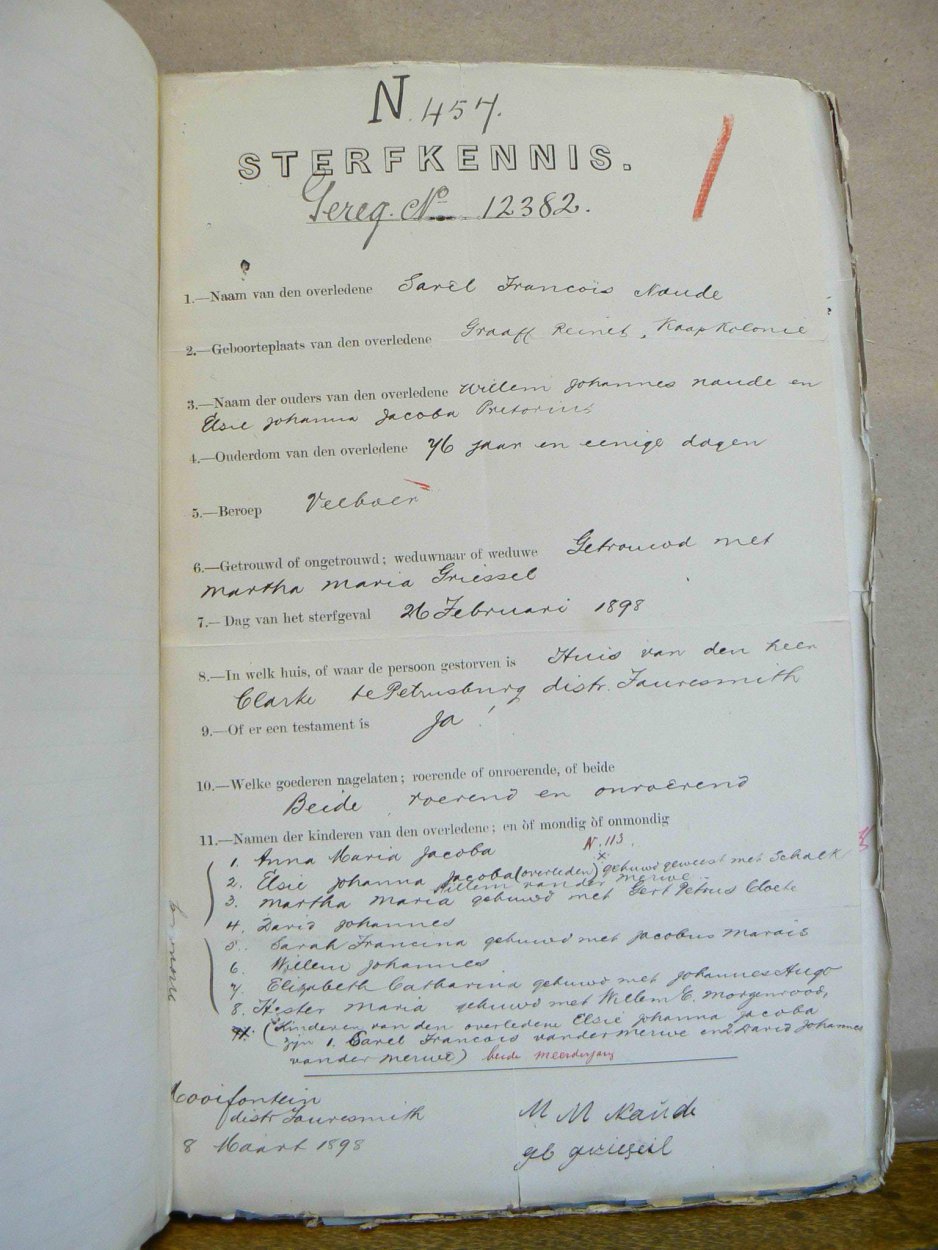 N. 457.
STERFKENNIS.
Gereg. No. 12382.
1.—Naam van den overledene Sarel Francois Naude
2.—Geboorteplaats van den overledene Graaff Reinet, Kaapkolonie
3.—Naam der ouders van den overledene Willem Johannes Naude en
Elsie Johanna Jacoba Pretorius
4.—Ouderdom van den overledene 76 jaar en eenige dagen
5.—Beroep Veeboer
6.—Getrouwd of ongetrouwd; weduwnaar of weduwe Getrouwd met
Martha Maria Griessel
7.—Dag van het sterfgeval 26 Februari 1898
8.—In welk huis, of waar de persoon gestorven is Huis van den heer
Clarke te Petrusburg distr. Fauresmith
9.—Of er een testament is Ja!
10.—Welke goederen nagelaten; roerende of onroerende, of beide
Beide roerend en onroerend
11.—Namen der kinderen van den overledene; en òf mondig òf onmondig
N. 113
1. Anna Maria Jacoba
2. Elsie Johanna Jacoba (overleden) x gehuwd geweest met Schalk
Willem van der Merwe
3. Martha Maria gehuwd met Gert Petrus Cloete
4. David Johannes
5. Sarah Francina gehuwd met Jacobus Marais
6. Willem Johannes
7. Elizabeth Catharina gehuwd met Johannes Hugo
8. Hester Maria gehuwd met Willem E. Morgenrood,
(Kinderen van den overledene Elsie Johanna Jacoba
zijn 1. Sarel Francois van der Merwe en 2 David Johannes
van der Merwe) beide meerderjarig
Mooifontein
distr Fauresmith
8 Maart 1898
M M Naude
gb griesel